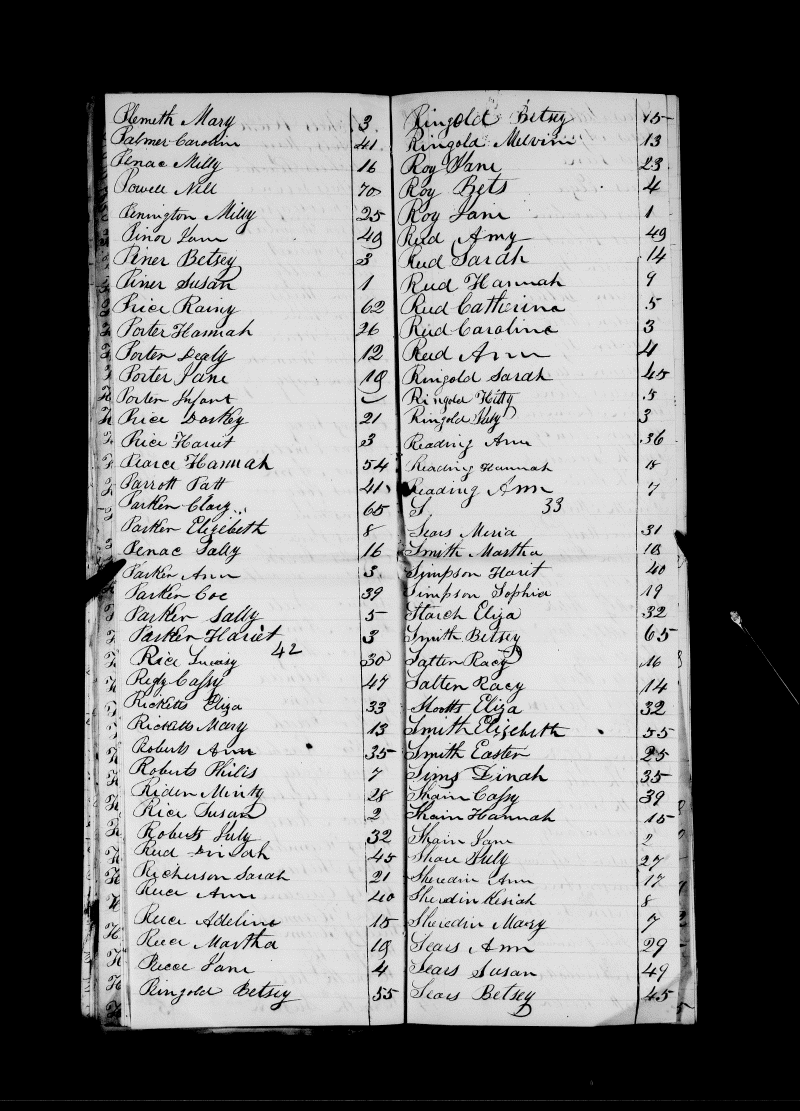 Plemeth Mary 3
Palmer Caroline 41
Penac Milly 16
Powell Nell 70
Penington Milly 25
Pinor Jane 49
Piner Betsey 3
Piner Susan 1
Price Rainy 62
Porter Hannah 26
Porter Dealy 12
Porter Jane 19
Porter Infant
Price Dorkey 21
Price Hariet 3
Pearce Hannah 54
Parrott Patt 41
Parker Clary 65
Parker Elizebeth 8
Penac Sally 16
Parker Ann 3
Parker Coe 39
Parker Sally 5
Parker Hariet 3
42
Rice Lucisy 30
Cassy 47
Ricketts Eliza 33
Ricketts Mary 13
Roberts Ann 35
Roberts Philis 7
Riden Minty 28
Rice Susan 2
Roberts July 32
Reed 45
Richerson Sarah 21
Reece Ann 40
Reece Adeline 15
Reece Martha 19
Reece Jane 4
Ringold Betsey 55
Ringold Betsey 15
Ringold Melvini 13
Roy Jane 23
Roy Bets 4
Roy Jane 1
Reed Amy 49
Reed Sarah 14
Reed Hannah 9
Reed Catherine 5
Reed Caroline 3
Reed Ann 4
Ringold Sarah 45
Ringold Hitty 5
Ringold July 3
Reading Ann 36
Reading Hannah 18
Reading Ann 7
S. 33
Sears Meria 31
Smith Martha 18
Simpson Harit 40
Simpson Sophia 19
Starch Eliza 32
Smith Betsey 65
Satten Racy 16
Satten Racy 14
Shootts Eliza 32
Smith Elizebeth 55
Smith Easter 25
Sims Dinah 35
Shain Cassy 39
Shain Hannah 15
Shain Jane 2
Share July 27
Sheredin Ann 17
Sheredin Kesiah 8
Sheredin Mary 7
Sears Ann 29
Sears Susan 49
Sears Betsey 45